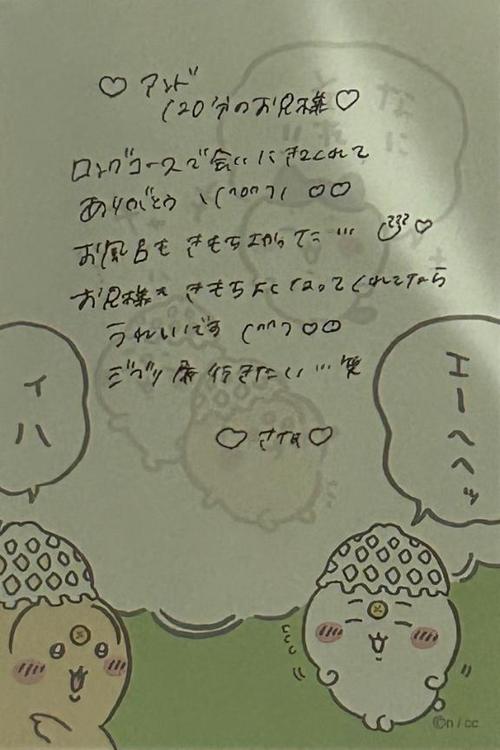 ♡ アンド
120分のお兄様♡
ロングコースで会いにきてくれて
ありがとう \(^^)/ ♡♡
お風呂もきもちよかってた…♡
お兄様もきもちよくなってくれてたら
うれいいです (^^) ♡♡
ジブリ展行きたい…笑
♡ さな ♡
イハ
エーヘヘッ
©n/cc